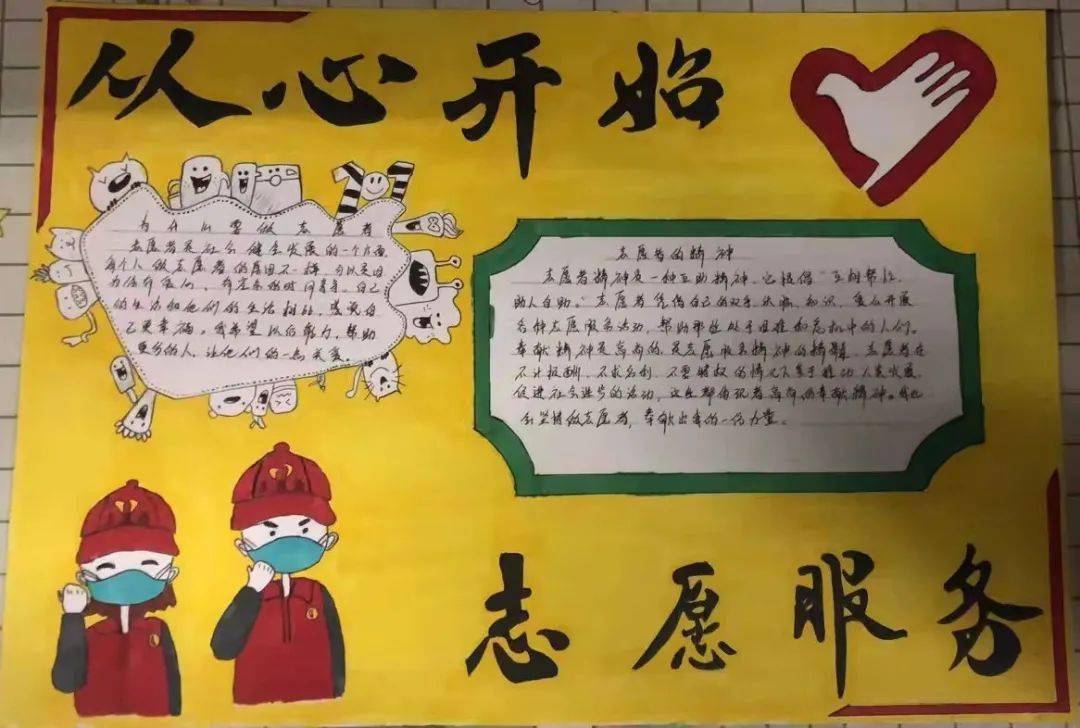 从心开始
为什么要做志愿者
志愿者是社会健全发展的一个方面
每个人做志愿者的原因不一样，可以是因
的生活和他们的生活相比，感觉自
己更幸福。我希望以后努力，帮助
更多的人，让他们的一点关爱。
志愿者的精神
志愿者精神是一种互助精神，它提倡“互相帮忙、
助人自助。”志愿者凭借自己的双手、头脑、知识、爱心开展
各种志愿服务活动，帮助那些处于困难和危机中的人们。
奉献精神是高尚的，是志愿服务精神的精髓。志愿者在
不计报酬、不求名利、不要特权的情况下参于推动人类发展、
促进社会进步的活动，这些都体现着高尚的奉献精神。我也
会坚持做志愿者，奉献出自的一份力量。
志愿服务